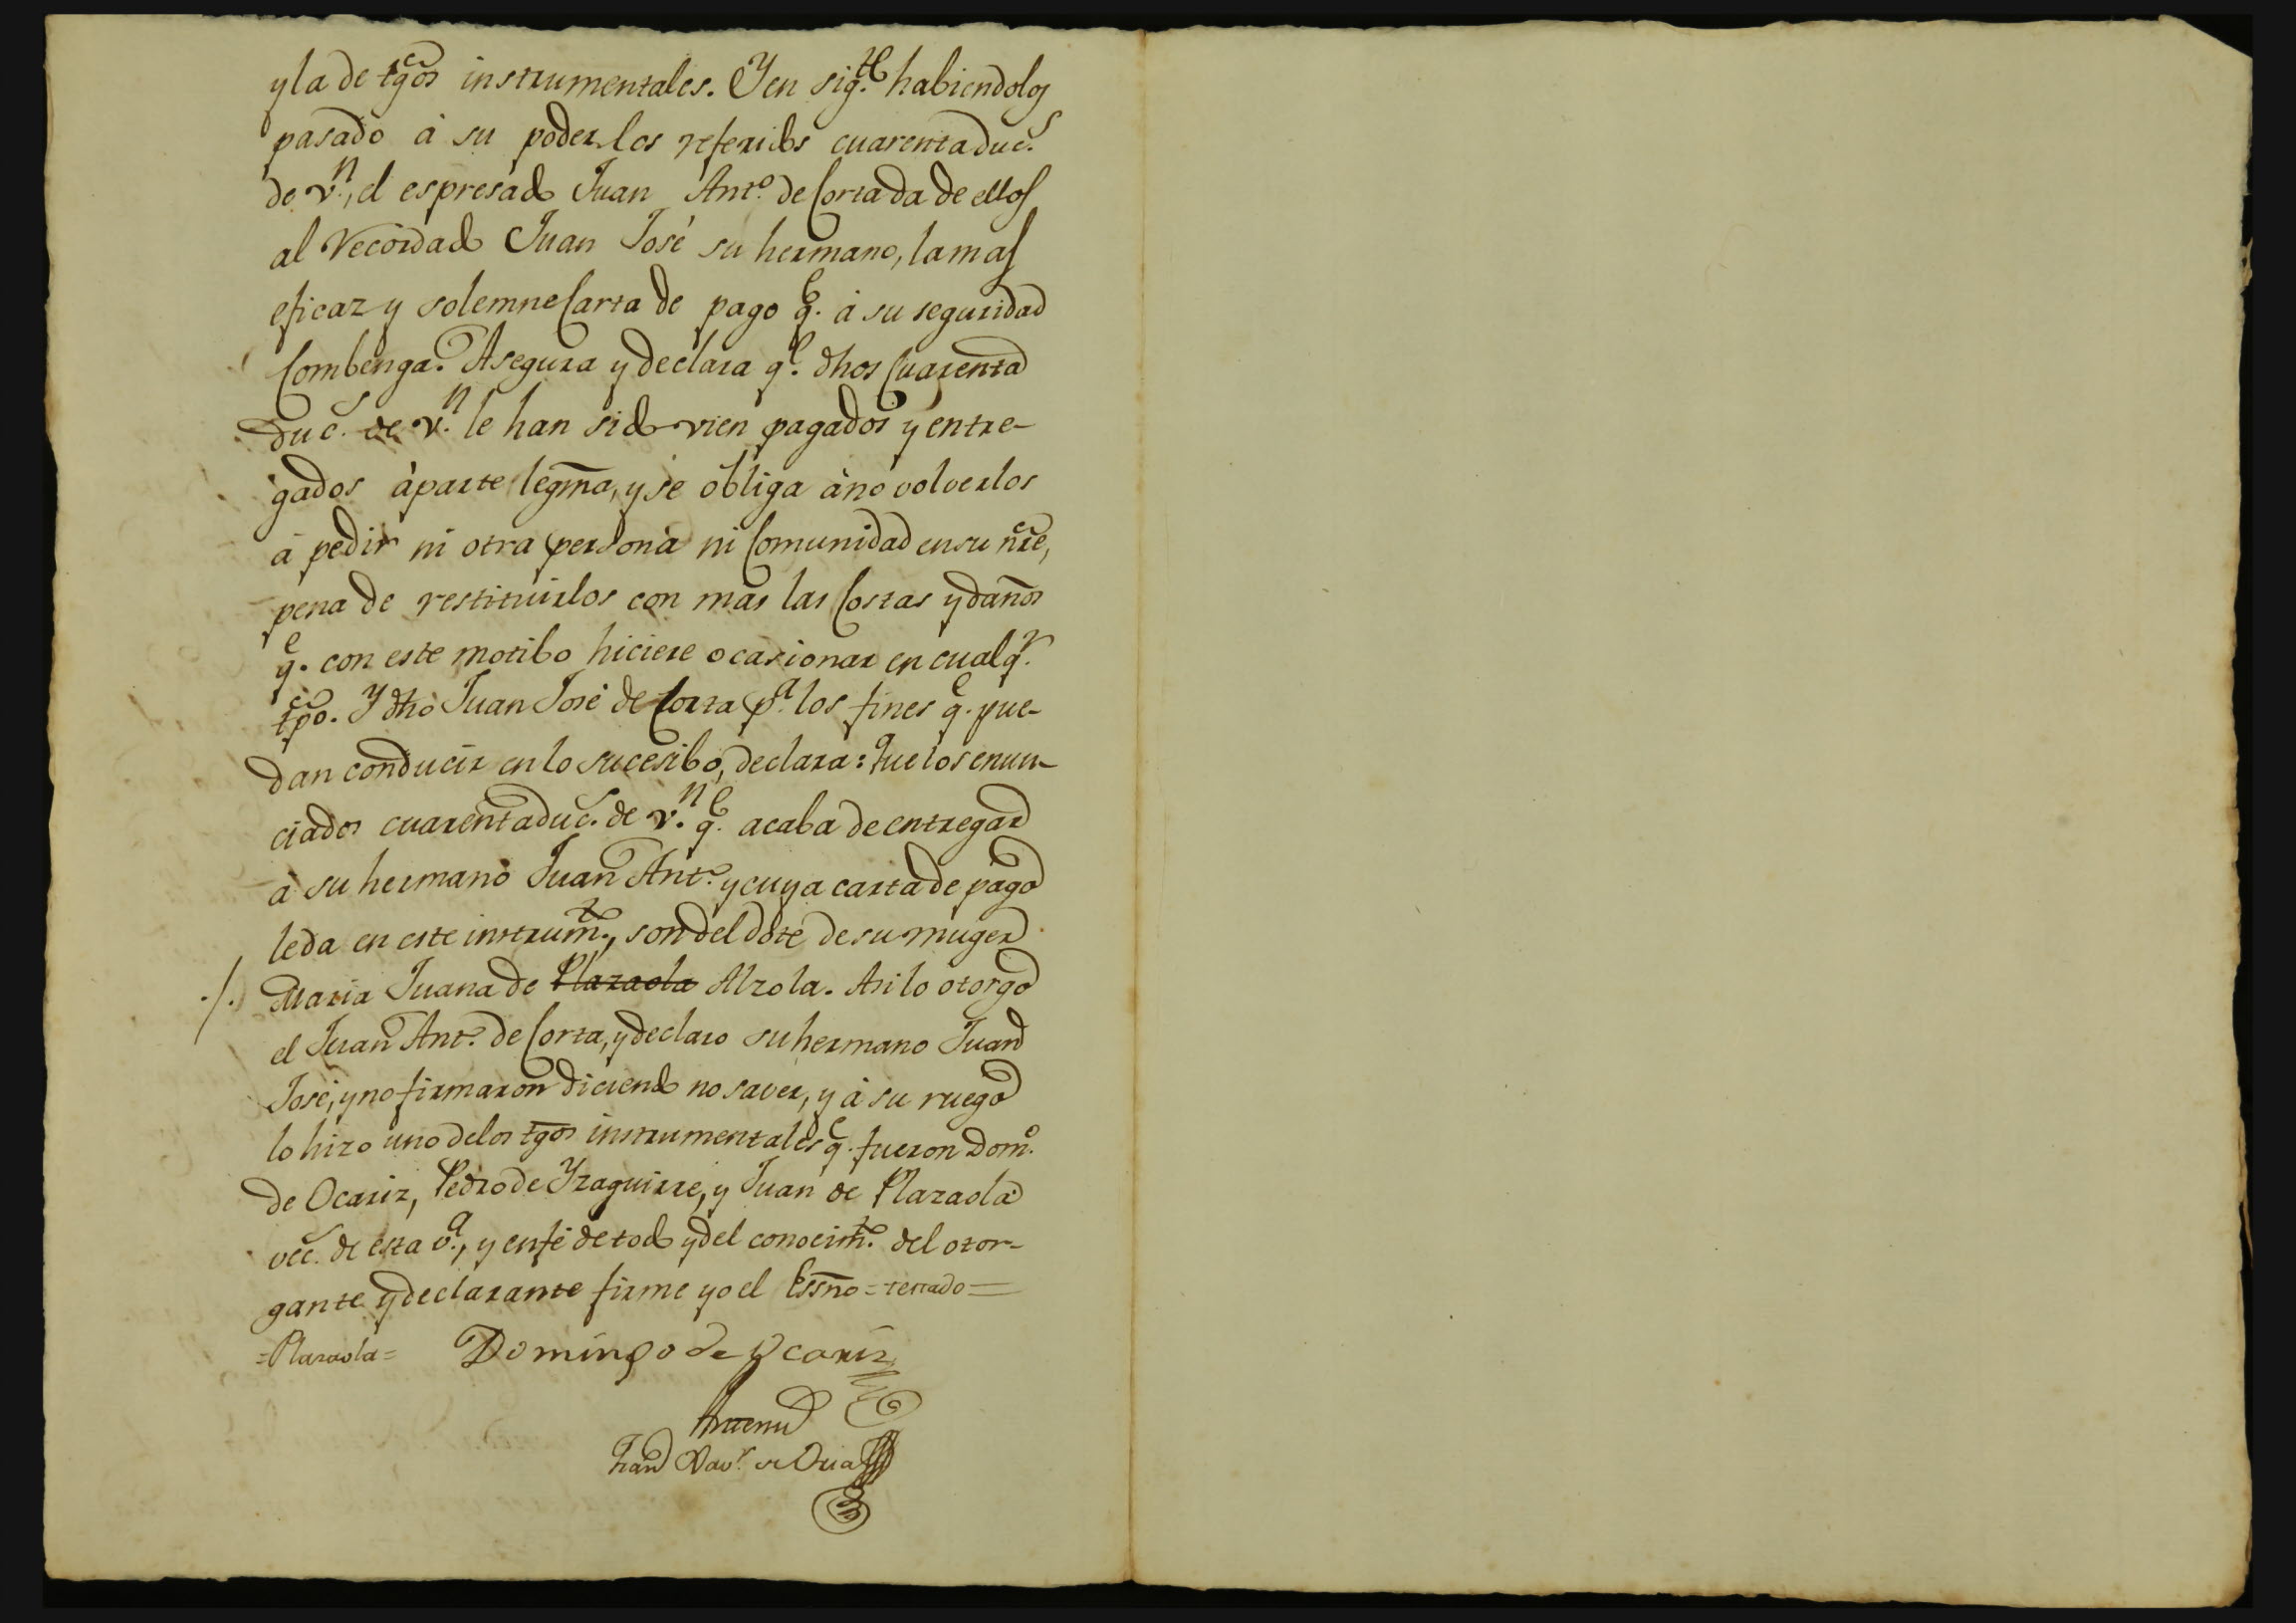 y la de tgos instrumentales. Y en sig.te habiendolos
pasado á su poder los referidos cuarenta duc.s
de v.n, el espresado Juan Ant.o de Corta da de ellos
al recordado Juan José su hermano, la mas
eficaz y solemne Carta de pago q.e á su seguridad
Combenga. Asegura y declara q.e dhos Cuarenta
duc.s de v.n le han sido vien pagados y entre-
gados á parte legma, y se obliga á no volverlos
á pedir ni otra persona ni Comunidad en su nre,
pena de restituirlos con mas las Costas y daños
q.e con este motibo hiciere ocasionar en cualq.r
tpo. Y dho Juan José de Corta p.a los fines q.e pue-
dan conducir en lo sucesibo, declara: Que los enun-
ciados cuarenta duc.s de v.n q.e acaba de entregar
á su hermano Juan Ant.o y cuya carta de pago
le da en este instrum.to, son del dote de su muger
./. Maria Juana de Plazaola Alzola. Asi lo otorgó
el Juan Ant.o de Corta, y declaro su hermano Juan
José, y no firmaron diciendo no saver, y á su ruego
lo hizo uno de los tgos instrumentales q.e fueron Dom.o
de Ocariz, Pedro de Yzaguirre, y Juan de Plazaola
vec.s de esta v.a, y en fé de todo y del conocim.to del otor-
gante y declarante firme yo el Essno = testado =
= Plazaola = Domingo de Ocariz
Antemi